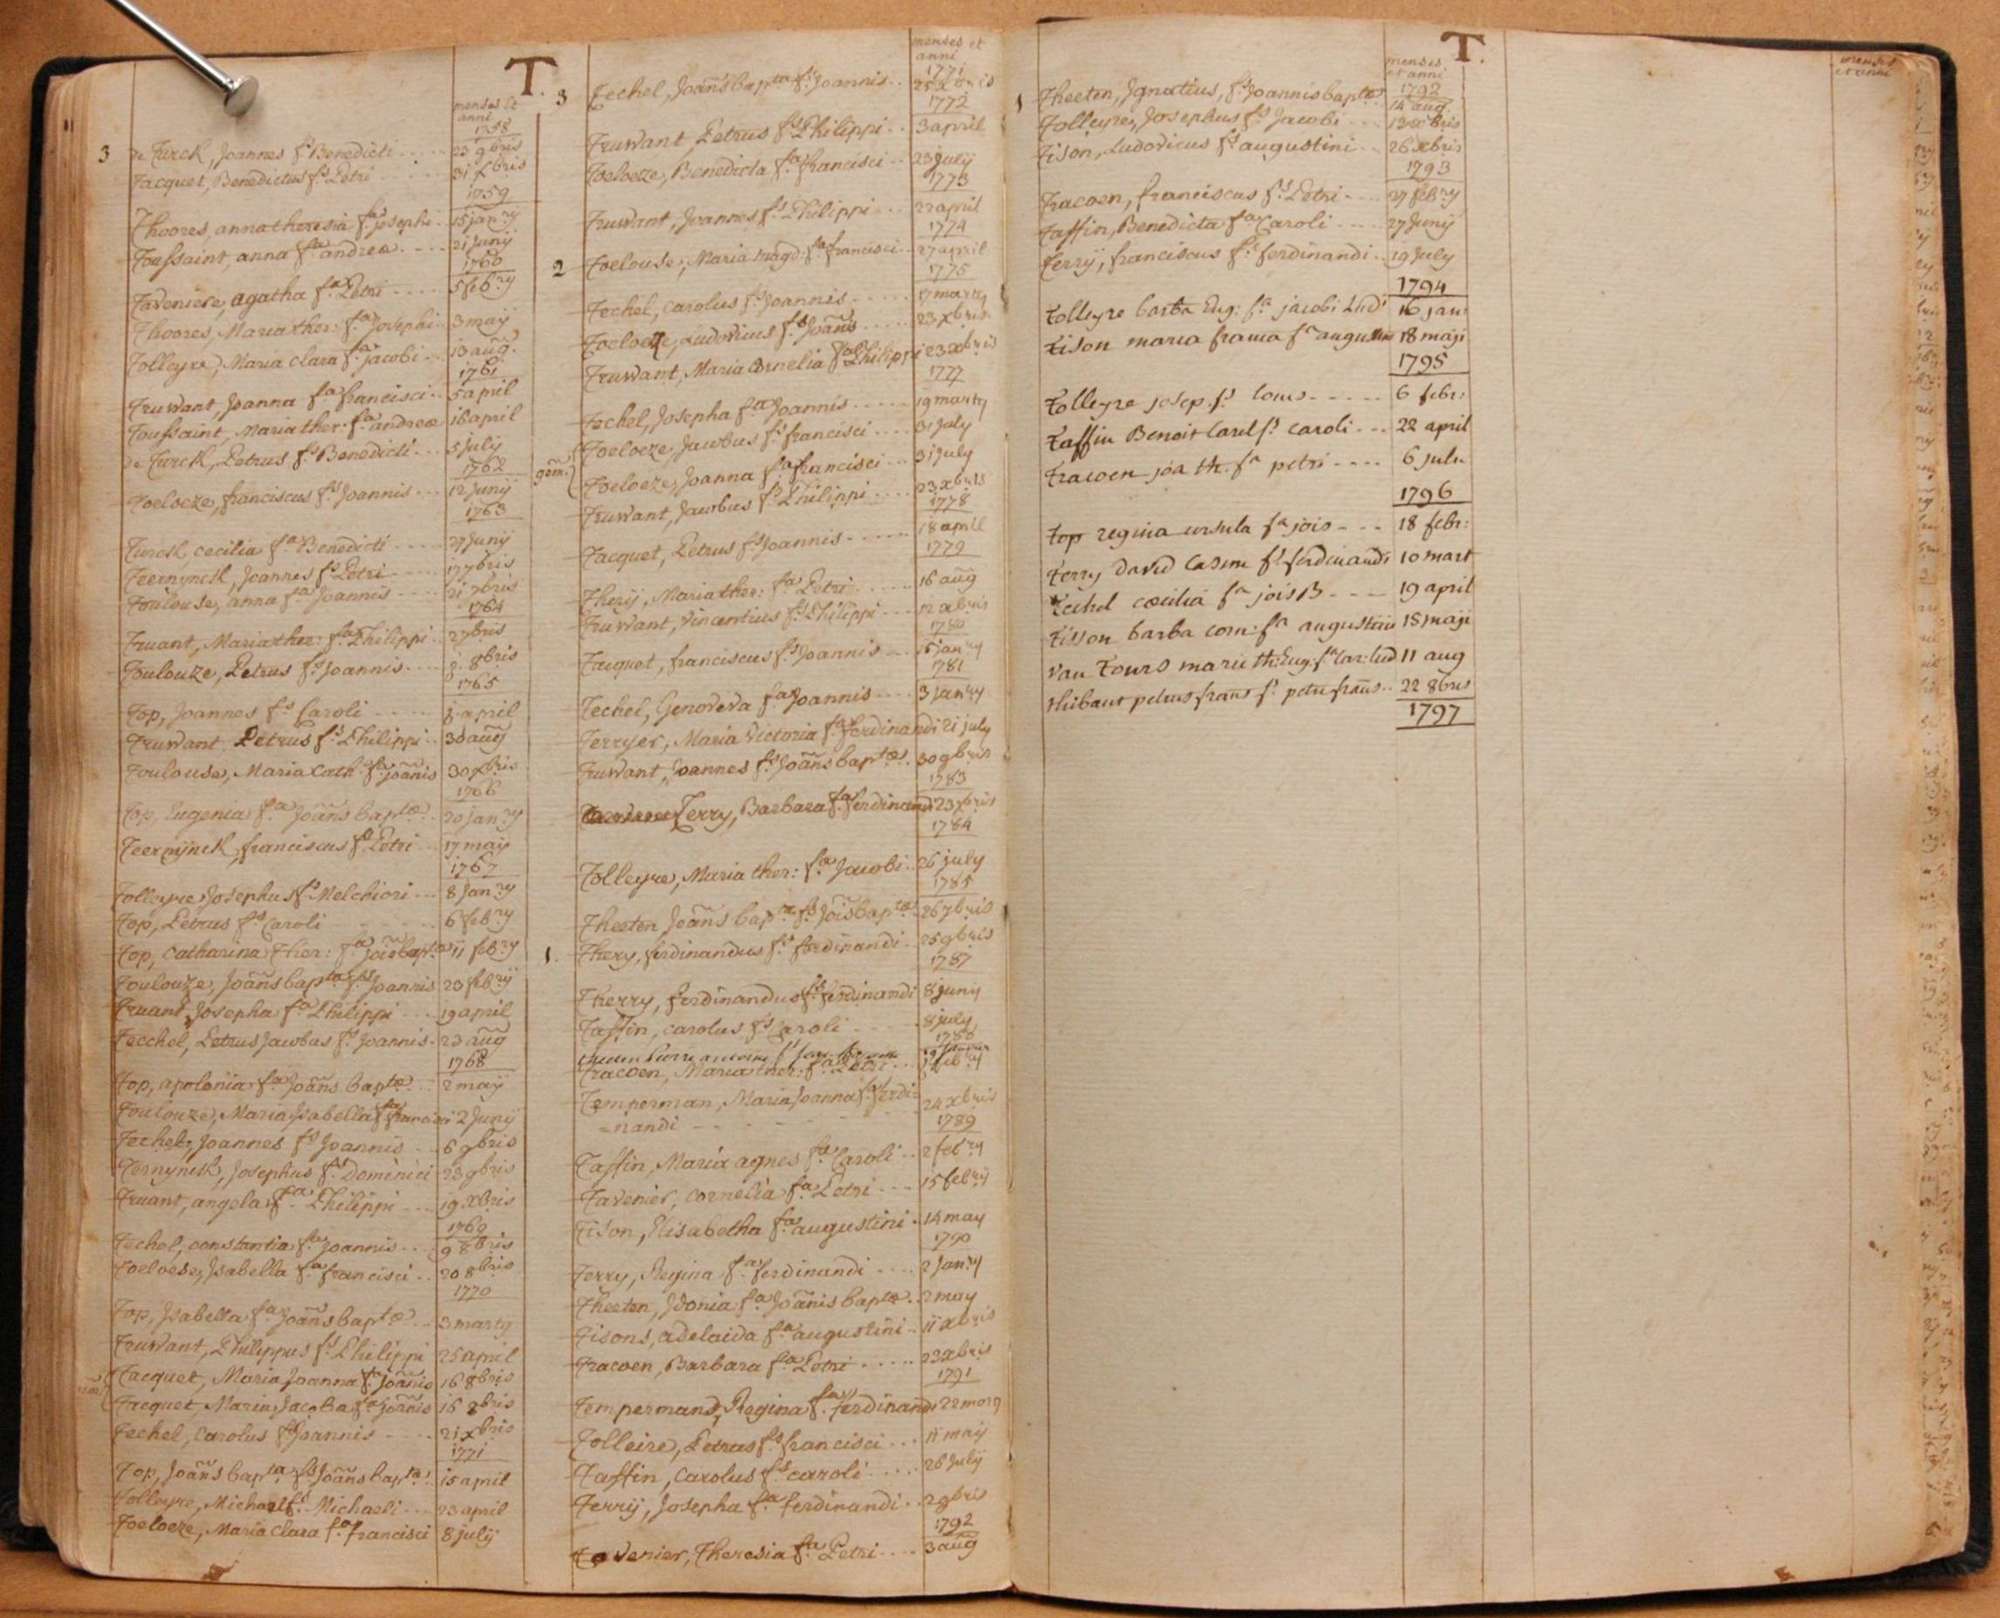 T.
menses et
anni
1758
3 de Turck, Joannes fs. Benedicti 23 9bris
Tacquet, Benedictus fs. Petri 31 xbris
1759
Thoores, anna theresia fa. Josephi 15 janry
Toussaint, anna fa. andreæ 21 Junij
1760
Taveniere, agatha fa. Petri 5 febry
Thoores, Maria ther: fa. Josephi 3 maij
Tolleyre, Maria Clara fa. jacobi 13 aug.
1761
Truwant, Joanna fa. francisci 5 april
Toussaint, Maria ther: fa. andreæ 16 april
de Turck, Petrus fs. Benedicti 5 july
1762
Toeloeze, franciscus fs. Joannis 12 Junij
1763
Turck, cecilia fa. Benedicti 27 Junij
Teernynck, Joannes fs. Petri 17 7bris
Toulouse, anna fa. Joannis 21 xbris
1764
Truant, Maria ther: fa. Philippi 2 7bris
Toulouze, Petrus fs. Joannis 8bris
1765
Top, Joannes fs. Caroli april
Truwant, Petrus fs. Philippi 30 aug
Toulouse, Maria Cath: fa. joañis 30 xbris
1766
Top, Eugenia fa. Joañs baptæ 20 janry
Teernijnck, franciscus fs. Petri 17 maij
1767
Tolleyre Josephus fs. Melchiori 8 Janry
Top, Petrus fs. Caroli 6 febry
Top, Catharina Ther: fa. Jois bapt: 11 febry
Toulouze, Joañs bapta fs. Joannis 23 febrij
Truant, Josepha fa. Philippi 19 april
Tecchel, Petrus Jacobus fs. Joannis 23 aug
1768
Top, apolonia fa. Joañs baptæ 2 maij
Toulouze, Maria Isabella fa. francisci 2 Junij
Techel, Joannes fs. Joannis 6 9bris
Ternynck, Josephus fs. Dominici 23 9bris
Truant, angela fa. Philippi 19 xbris
1769
Techel, constantia fa. Joannis 9 8bris
Toeloese, Isabella fa. francisci 20 8bris
1770
Top, Isabella fa. Joañs baptæ 3 marty
Truwant, Philippus fs. Philippi 25 april
Tacquet, Maria Joanna fa. joañis 16 8bris
Tacquet Maria Jacoba fa. joannis 16 8bris
Techel, Carolus fs. Joannis 21 xbris
1771
Top, Joañs bapta fs. Joañs bapta: 15 april
Tolleyre, Michael fs. Michaeli 23 april
Toeloeze, Maria Clara fa. francisci 8 julij
menses et
anni
1771
3 Techel, Joañs bapta fs. Joannis 25 xbris
1772
Truwant Petrus fs. Philippi 3 april
Toeloeze, Benedicta fa. francisci 23 julij
1773
Truwant, Joannes fs. Philippi 22 april
1774
2 Toelouse, Maria magd: fa. francisci 27 april
1775
Techel, Carolus fs. Joannis 17 marty
Toeloeze, Ludovicus fs. Joañs 23 xbris
Truwant, Maria Cornelia fa. Philippi 23 xbris
1777
Techel, Josepha fa. Joannis 19 marty
Toeloeze, Jacobus fs. francisci 31 july
gem. Toeloeze, Joanna fa. francisci 31 july
Truwant, Jacobus fs. Philippi 23 xbris
1778
Tacquet, Petrus fs. Joannis 18 april
1779
Therij, Maria ther: fa. Petri 16 aug
Truwant, Vincentius fs. Philippi 12 xbris
1780
Tacquet, franciscus fs. Joannis 15 janry
1781
Techel, Genoveva fa. Joannis 3 janry
Terryer, Maria Victoria fa. ferdinandi 21 july
Truwant, Joannes fs. Joañs baptæ 30 9bris
1783
Terry, Barbara fa. ferdinandi 23 xbris
1784
Tolleyre, Maria ther: fa. Jacobi 26 july
1785
Theeten Joañs bapta fs. Jois baptæ 26 7bris
1. Thery, ferdinandus fs. ferdinandi 25 9bris
1787
Therry, ferdinandus fs. ferdinandi 8 juny
Taffin, carolus fs. Caroli 8 july
1788
Tracoen, Maria ther: fa. Petri febry
Temperman, Maria Joanna fa. ferdi-
=nandi 24 xbris
1789
Taffin, Maria agnes fa. Caroli 2 febry
Tavenier, cornelia fa. Petri 15 febrij
Tison, Elisabetha fa. augustini 14 may
1790
Terry, Regina fa. ferdinandi 2 janry
Theeten, Idonia fa. Joãnis baptæ 2 may
Tisons, adelaida fa. augustini 11 xbris
Tracoen, Barbara fa. Petri 23 xbris
1791
Tempermans, Regina fa. ferdinandi 22
Tolleire, Petrus fs. francisci 11 maij
Taffin, carolus fs. caroli 26 Julij
Terrij, Josepha fa. ferdinandi 2 9bris
1792
Tavenier, Theresia fa. Petri 3 aug
T.
menses
et anni
1792
1 Theeten, Ignatius, fs. Joannis baptæ 14 aug
Tolleyre, Josephus fs. Jacobi 13 xbris
Tison, Ludovicus fs. augustini 26 xbris
1793
Tracoen, franciscus fs. Petri 27 febry
Taffin, Benedicta fa. Caroli 27 Junij
Terrij, franciscus fs. ferdinandi 19 July
1794
Tolleyre barba Eug: fa jacobi Lud 16 jan:
Tison maria franca fa augustini 18 maji
1795
Tolleyre josep. fs. louis 6 febr:
Taffin Benoit Carel fs. Caroli 22 april
Tracoen joa th: fa petri 6 julii
1796
Top regina ursula fa jois 18 febr:
Terry david Casim fs ferdinandi 10 mart
Techel cæcilia fa jois B 19 april
Tisson barba corn: fa augustini 18 maji
Van Tours marie th: Eug: fa Car: lud 11 aug
thibaut petrus frañs fs. petri frañs 22 8bris
1797
menses
et anni